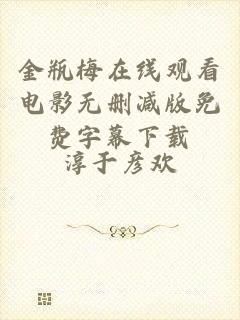 金瓶梅在线观看
电影无删减版免
费字幕下载
淳于彦欢